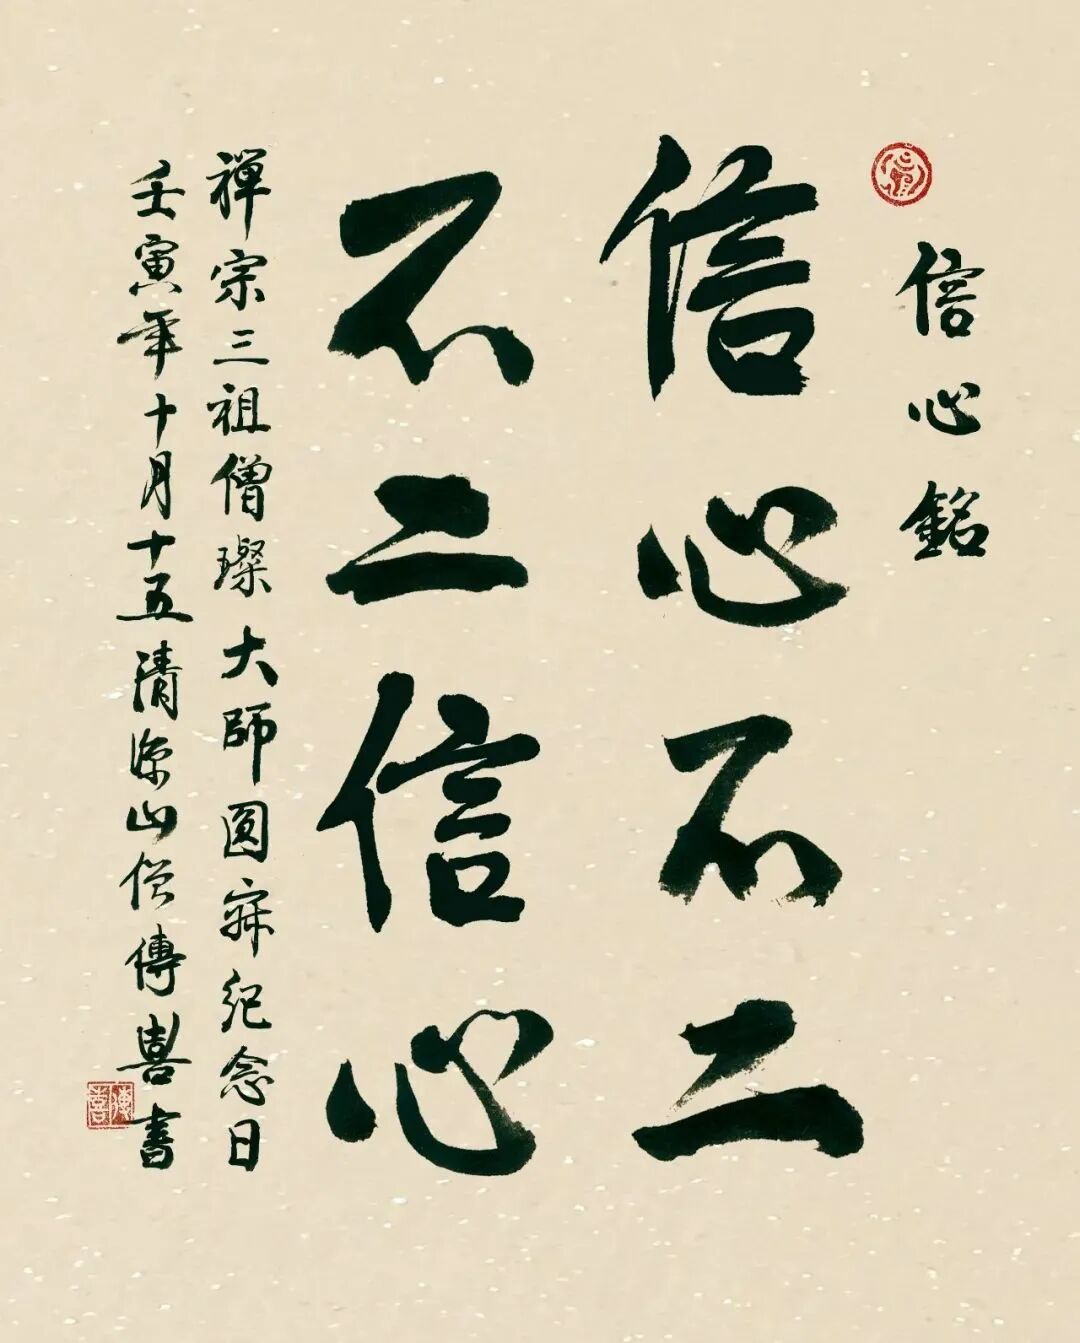 信心銘
信心不二
不二信心
禪宗三祖僧璨大師圓寂紀念日
壬寅年十月十五清源山僧傳喜書
傳喜